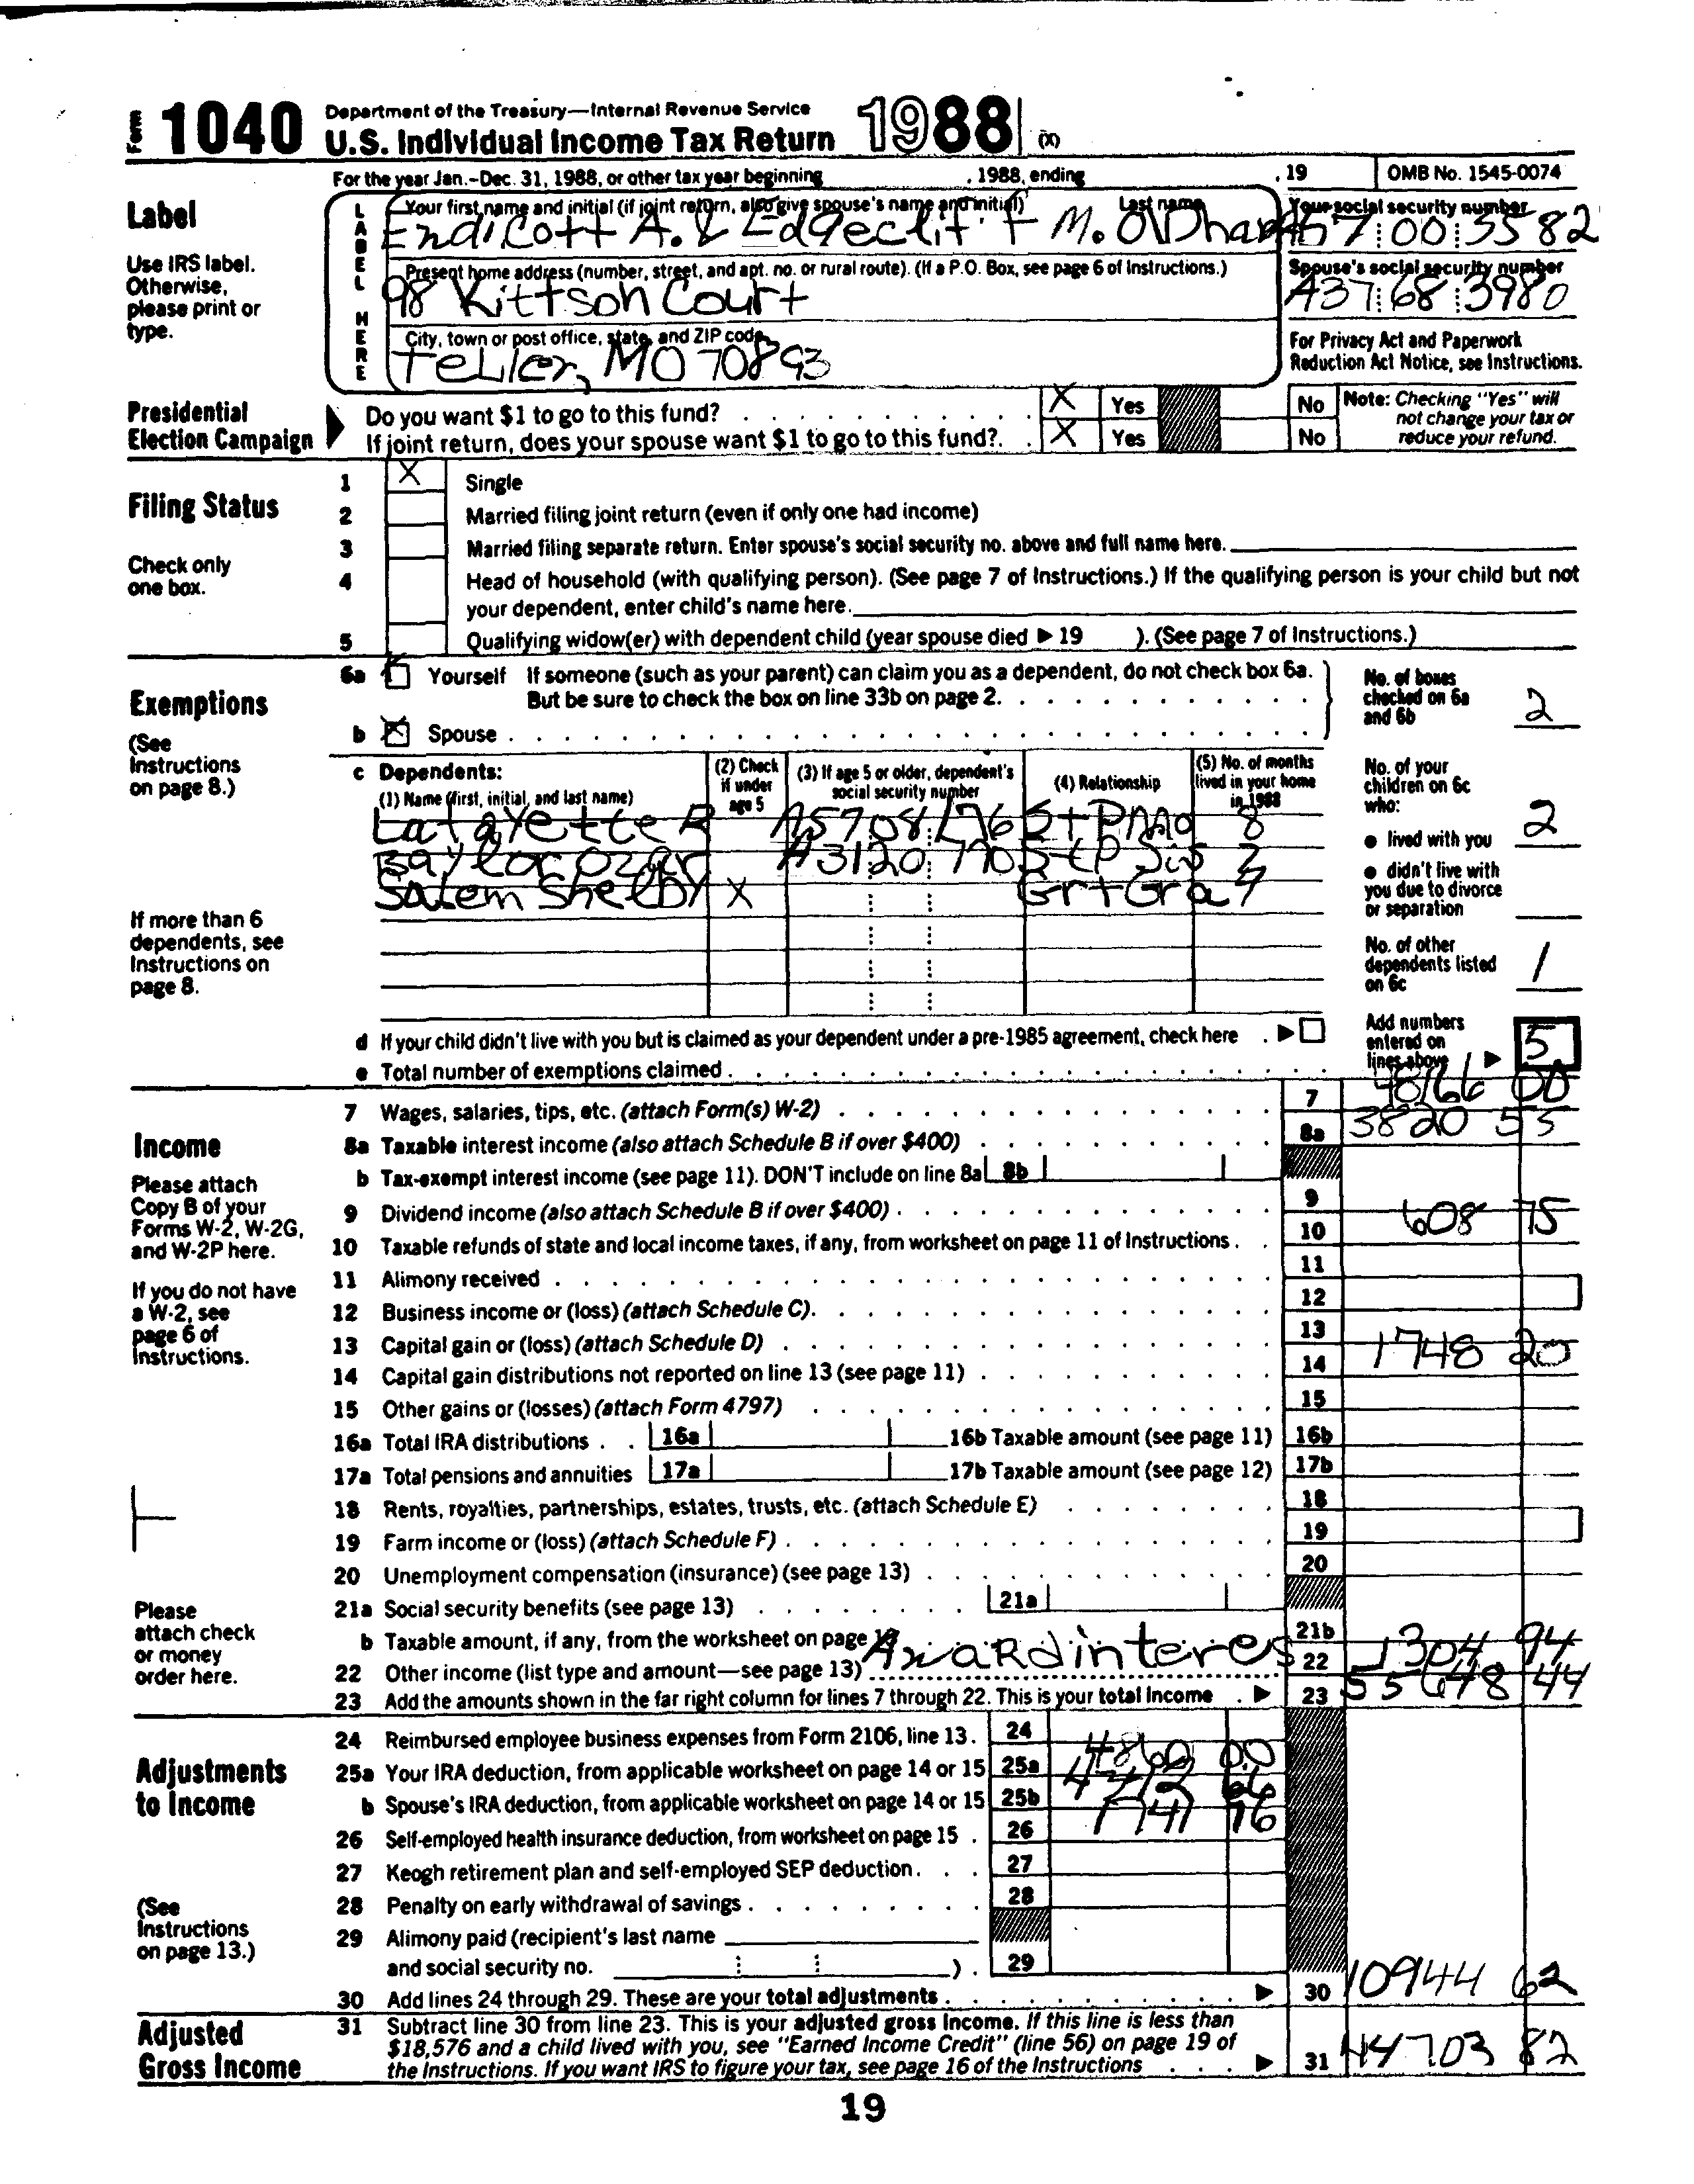 Form 1040 Department of the Treasury—Internal Revenue Service
U.S. Individual Income Tax Return 1988 (X)
For the year Jan.-Dec. 31, 1988, or other tax year beginning , 1988, ending , 19 OMB No. 1545-0074
Label
Use IRS label. Otherwise, please print or type.
LABEL HERE
Your first name and initial (if joint return, also give spouse's name and initial) Last name
Endicott A. & Edgeclif f M.
Your social security number
00
Present home address (number, street, and apt. no. or rural route). (If a P.O. Box, see page 6 of Instructions.)
98 Kittson Court
Spouse's social security number
A37 68 3980
City, town or post office, state, and ZIP code
Teller, MO 70893
For Privacy Act and Paperwork
Reduction Act Notice, see Instructions.
Presidential Election Campaign
Do you want $1 to go to this fund? X Yes No
If joint return, does your spouse want $1 to go to this fund? X Yes No
Note: Checking "Yes" will not change your tax or reduce your refund.
Filing Status
Check only one box.
1 X Single
2 Married filing joint return (even if only one had income)
3 Married filing separate return. Enter spouse's social security no. above and full name here.
4 Head of household (with qualifying person). (See page 7 of Instructions.) If the qualifying person is your child but not
your dependent, enter child's name here.
5 Qualifying widow(er) with dependent child (year spouse died ▶ 19 ). (See page 7 of Instructions.)
Exemptions
(See Instructions on page 8.)
6a Yourself If someone (such as your parent) can claim you as a dependent, do not check box 6a.
But be sure to check the box on line 33b on page 2.
b X Spouse
No. of boxes checked on 6a and 6b 2
c Dependents:
(1) Name (first, initial, and last name)
(2) Check if under age 5
(3) If age 5 or older, dependent's social security number
(4) Relationship
(5) No. of months lived in your home in 1988
Lafayette R 8
Baylor Ozar
Salem Shelby X GrtGra
If more than 6 dependents, see Instructions on page 8.
No. of your children on 6c who:
• lived with you 2
• didn't live with you due to divorce or separation
No. of other dependents listed on 6c 1
d If your child didn't live with you but is claimed as your dependent under a pre-1985 agreement, check here ▶
e Total number of exemptions claimed
Add numbers entered on lines above ▶ 5
Income
Please attach Copy B of your Forms W-2, W-2G, and W-2P here.
If you do not have a W-2, see page 6 of Instructions.
Please attach check or money order here.
7 Wages, salaries, tips, etc. (attach Form(s) W-2) 7 48166 00
8a Taxable interest income (also attach Schedule B if over $400) 8a 3820 55
b Tax-exempt interest income (see page 11). DON'T include on line 8a 8b
9 Dividend income (also attach Schedule B if over $400) 9
10 Taxable refunds of state and local income taxes, if any, from worksheet on page 11 of Instructions 10 608 75
11 Alimony received 11
12 Business income or (loss) (attach Schedule C) 12
13 Capital gain or (loss) (attach Schedule D) 13
14 Capital gain distributions not reported on line 13 (see page 11) 14 1748 20
15 Other gains or (losses) (attach Form 4797) 15
16a Total IRA distributions 16a 16b Taxable amount (see page 11) 16b
17a Total pensions and annuities 17a 17b Taxable amount (see page 12) 17b
18 Rents, royalties, partnerships, estates, trusts, etc. (attach Schedule E) 18
19 Farm income or (loss) (attach Schedule F) 19
20 Unemployment compensation (insurance) (see page 13) 20
21a Social security benefits (see page 13) 21a
b Taxable amount, if any, from the worksheet on page 21b
22 Other income (list type and amount—see page 13) Awardinteres 22 1304 94
23 Add the amounts shown in the far right column for lines 7 through 22. This is your total income ▶ 23 55648 44
Adjustments to Income
(See Instructions on page 13.)
24 Reimbursed employee business expenses from Form 2106, line 13. 24
25a Your IRA deduction, from applicable worksheet on page 14 or 15 25a 4860 00
b Spouse's IRA deduction, from applicable worksheet on page 14 or 15 25b
26 Self-employed health insurance deduction, from worksheet on page 15 26 1741 
27 Keogh retirement plan and self-employed SEP deduction 27
28 Penalty on early withdrawal of savings 28
29 Alimony paid (recipient's last name
and social security no. ) 29
30 Add lines 24 through 29. These are your total adjustments ▶ 30 10944 62
Adjusted Gross Income
31 Subtract line 30 from line 23. This is your adjusted gross income. If this line is less than
$18,576 and a child lived with you, see "Earned Income Credit" (line 56) on page 19 of
the Instructions. If you want IRS to figure your tax, see page 16 of the Instructions ▶ 31 44703 82
19